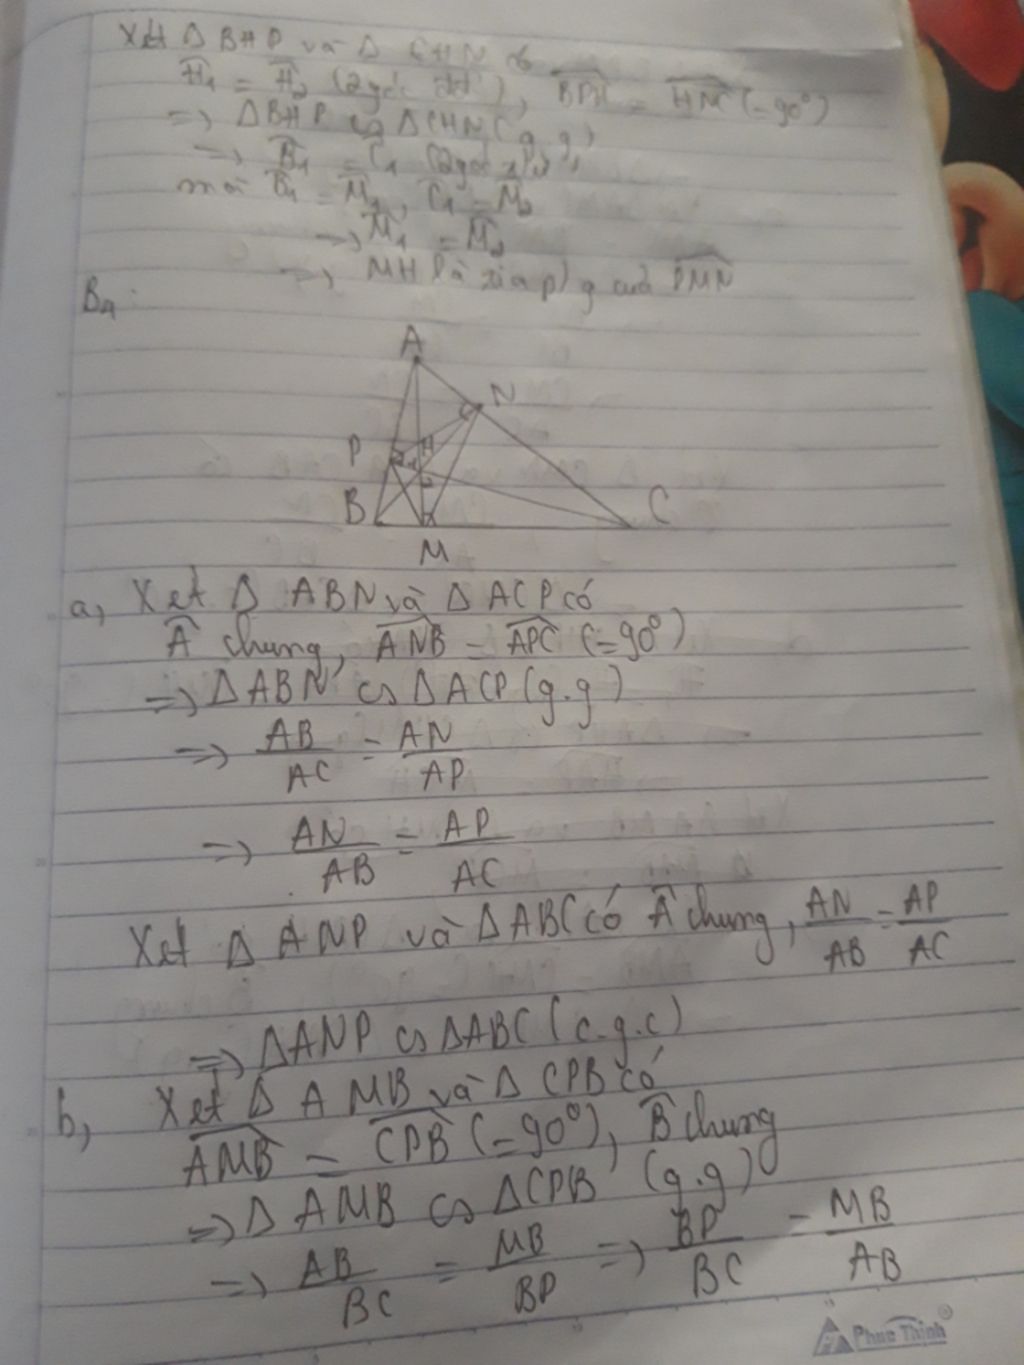 Xét Δ BHP và Δ CHN có
Ĥ₁ = Ĥ₂ (2 góc đđ), BPH = HNC (=90°)
=> ΔBHP ∽ ΔCHN (g.g)
=> B̂₁ = Ĉ₁ (2 góc
mà B̂₁ = M̂₁, Ĉ₁ = M̂₂
=> M̂₁ = M̂₂
=> MH là tia p/g của PMN
B4:
A
N
P
H
B
C
M
a, Xét Δ ABN và Δ ACP có
Â chung, ANB = APC (=90°)
=> ΔABN ∽ ΔACP (g.g)
=> AB/AC = AN/AP
=> AN/AB = AP/AC
Xét Δ ANP và ΔABC có Â chung, AN/AB = AP/AC
=> ΔANP ∽ ΔABC (c.g.c)
b, Xét Δ AMB và Δ CPB có
AMB = CPB (=90°), B̂ chung
=> Δ AMB ∽ ΔCPB (g.g)
=> AB/BC = MB/BP => BP/BC = MB/AB
Phuc Thịnh